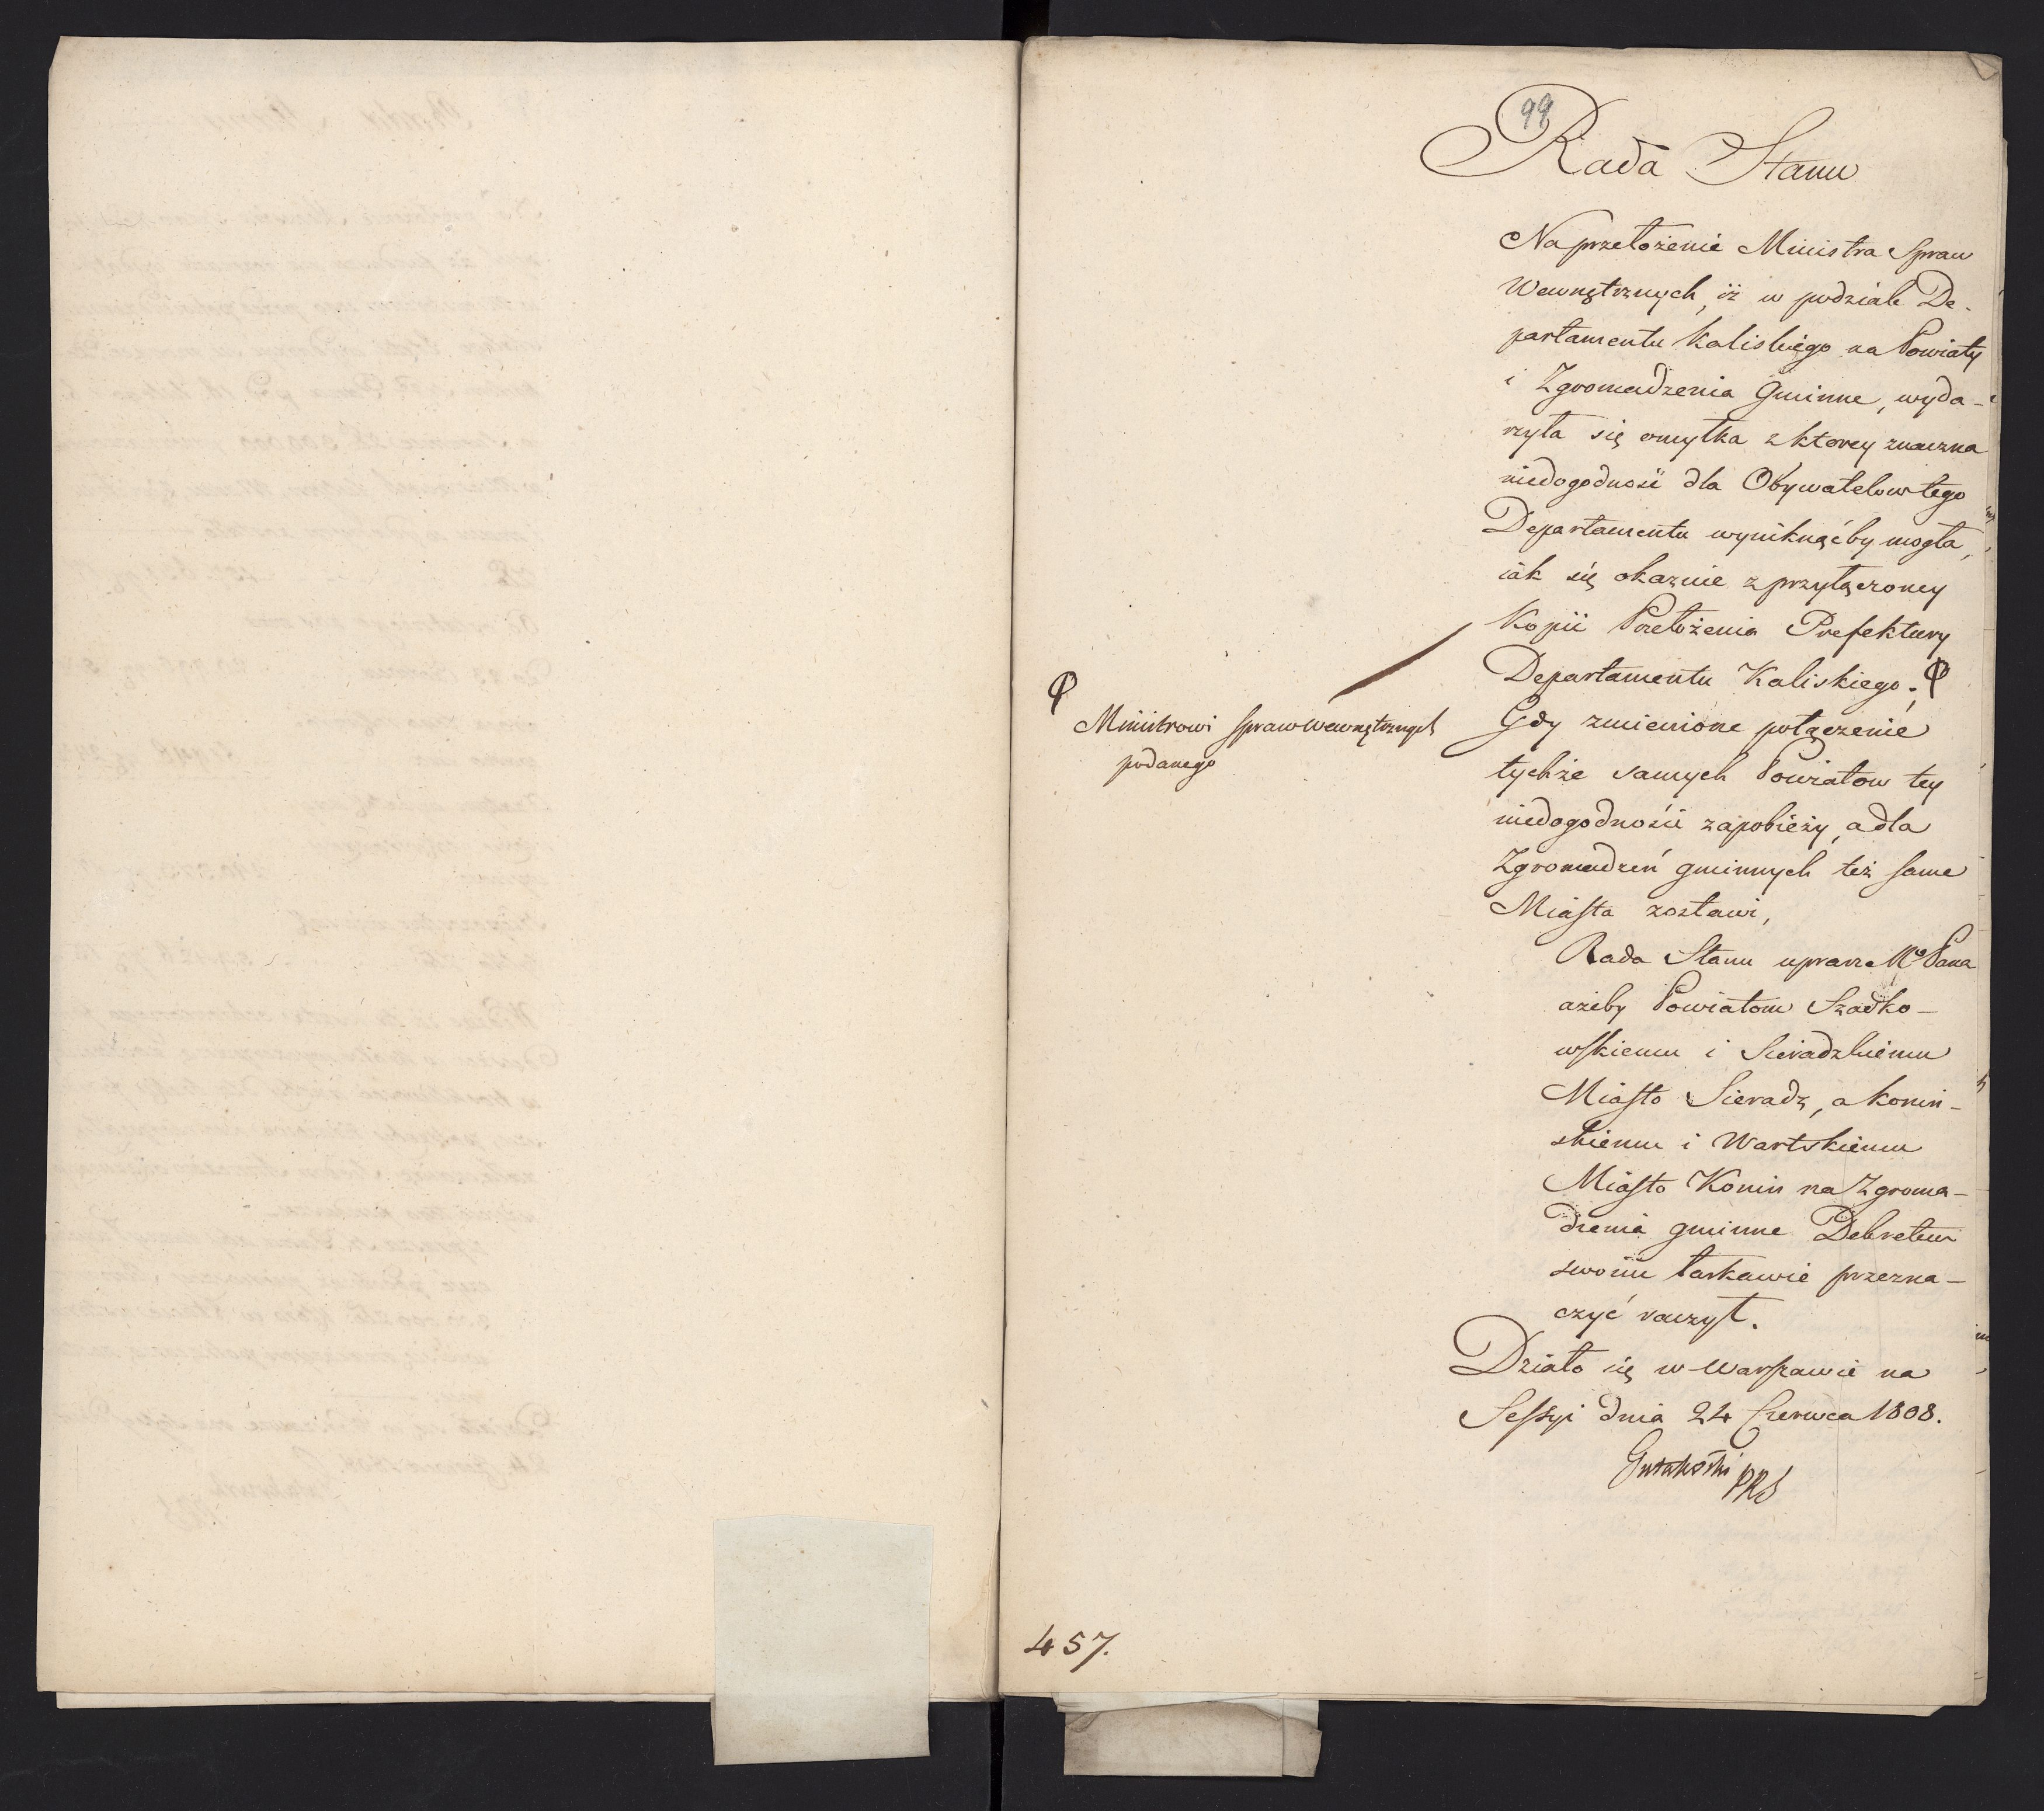 99
Rada Stanu
Na przełożenie Ministra Spraw
Wewnętrznych, iż w podziale De-
partamentu Kaliskiego na Powiaty
i Zgromadzenia Gminne, wyda-
rzyła się omyłka z ktorey znaczna
niedogodność dla Obywatelow tego
Departamentu wyniknąćby mogła,
iak się okazuie z przyłączoney
Kopii Przełożenia Prefektury
Departamentu Kaliskiego,
Ministrowi Spraw Wewnętrznych
podanego
Gdy zmienione połączenie
tychże samych Powiatow tey
niedogodności zapobieży, a dla
Zgromadzeń gminnych też same
Miasta zostawi,
Rada Stanu uprasza Pana
ażeby Powiatom Szadko-
wskiemu i Sieradzkiemu
Miasto Sieradz, a Konin-
skiemu i Wartskiemu
Miasto Konin na Zgroma-
dzenia gminne Dekretem
swoim łaskawie przezna-
czyć raczył.
Działo się w Warszawie na
Sessyi dnia 24 Czerwca 1808.
Gutakowski PRS
457.